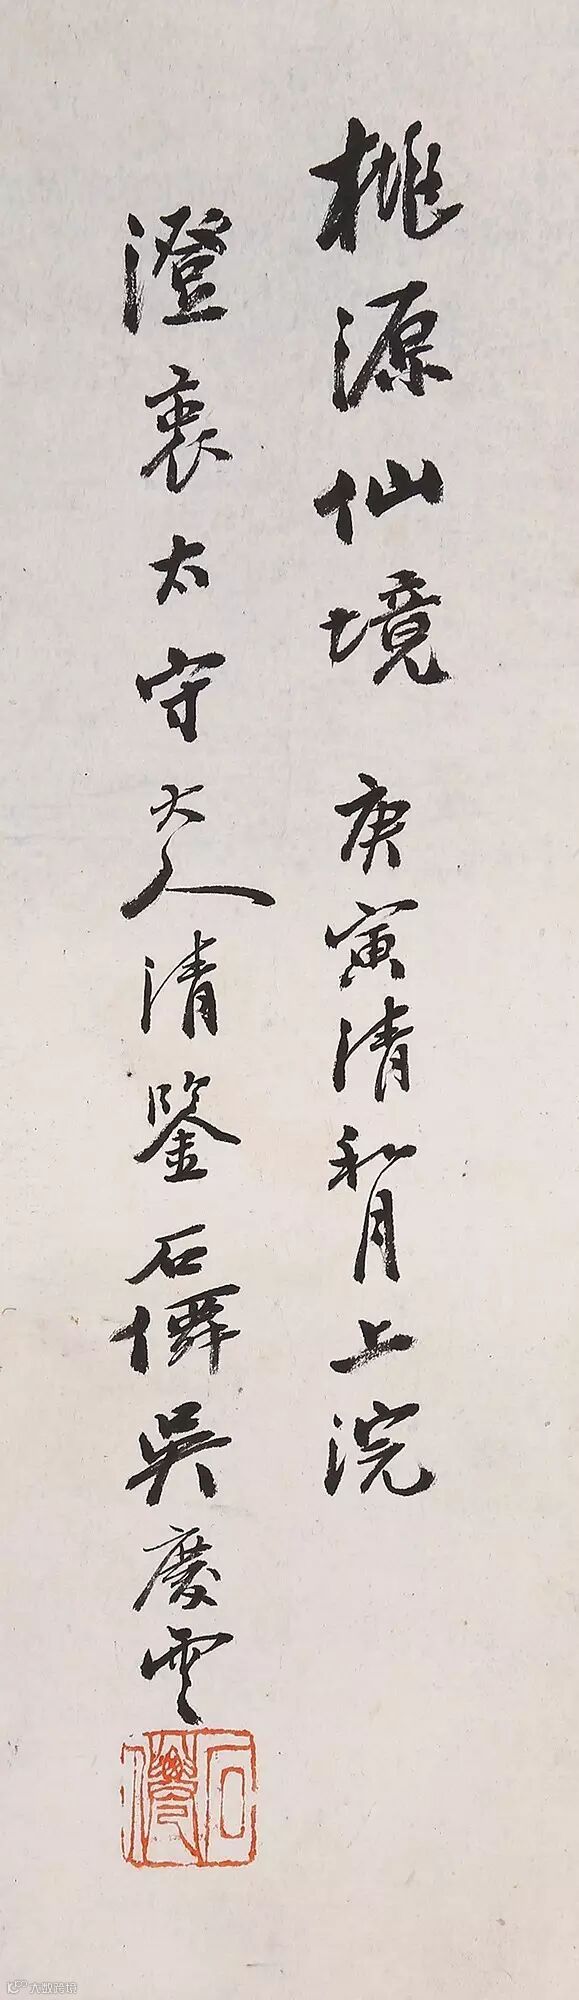 桃源仙境 庚寅清和月上浣
澄衷太守大人清鑒石僊吳慶雲
石僊
大数跨境